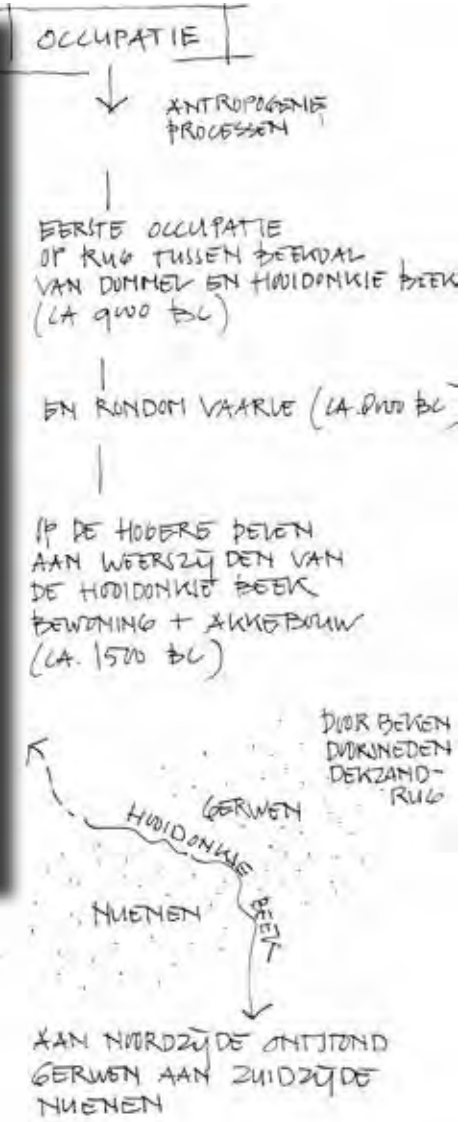 OCCUPATIE
ANTROPOGENE
PROCESSEN
EERSTE OCCUPATIE
OP RUG TUSSEN BEEKDAL
VAN DOMMEL EN HOOIDONKIE BEEK
(CA 9000 BC)
EN RONDOM VAARLE (CA. 8000 BC)
OP DE HOGERE DELEN
AAN WEERSZIJDEN VAN
DE HOOIDONKIE BEEK
BEWONING + AKKEBOUW
(CA. 1500 BC)
DOOR BEKEN
DOORSNEDEN
DEKZAND-
RUG
GERWEN
HOOIDONKIE
BEEK
NUENEN
AAN NOORDZIJDE ONTSTOND
GERWEN AAN ZUIDZIJDE
NUENEN